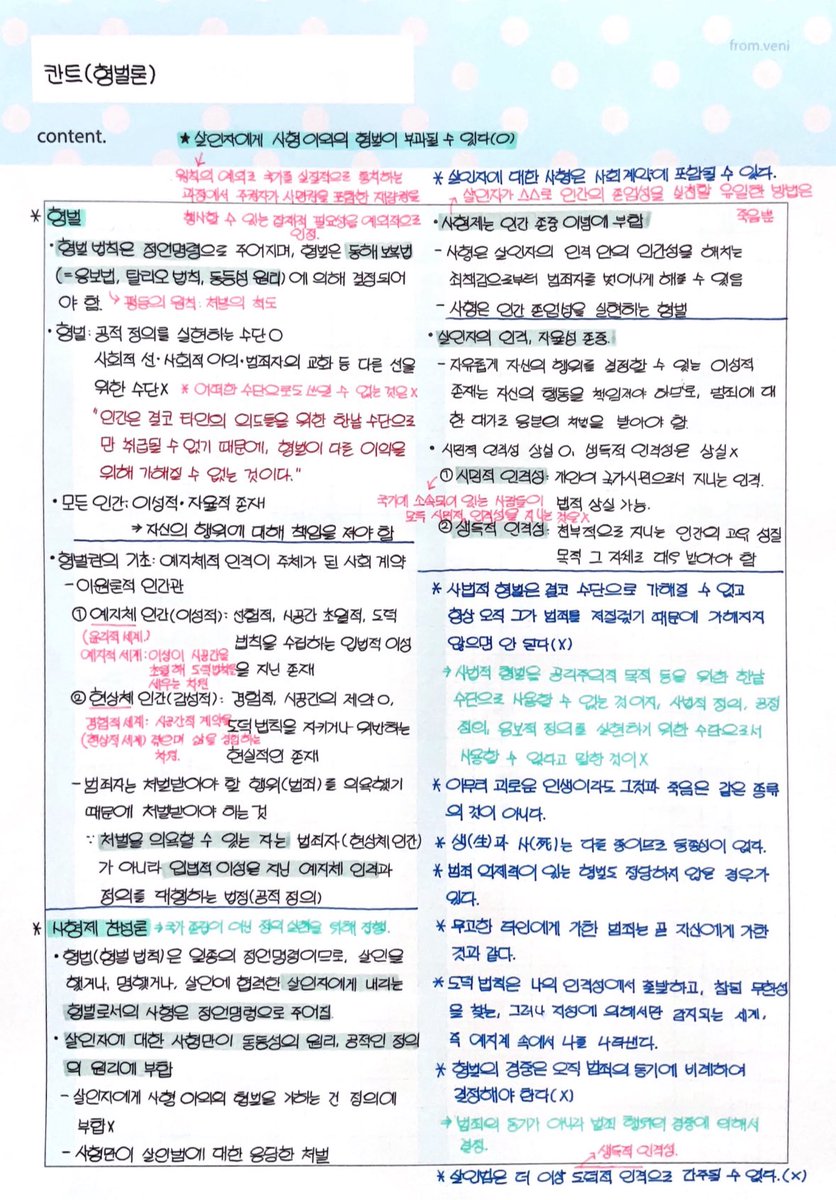 from.veni
칸트(형벌론)
content.
★ 살인자에게 사형 이외의 형벌이 부과될 수 있다(O)
원칙의 예외로 국가를 실질적으로 통치하는
과정에서 주권자가 사면권을 포함한 재량권을
행사할 수 있는 잠재적 필요성을 예외적으로
인정.
* 형벌
· 형벌 법칙은 정언명령으로 주어지며, 형벌은 동해보복법
(=응보법, 탈리오 법칙, 동등성 원리)에 의해 결정되어
야 함. ↳ 평등의 원칙: 처분의 척도
· 형벌: 공적 정의를 실현하는 수단 O
사회적 선·사회적 이익·범죄자의 교화 등 다른 선을
위한 수단X * 어떠한 수단으로도 쓰일 수 없는 것은X
"인간은 결코 타인의 의도들을 위한 한낱 수단으로
만 취급될 수 없기 때문에, 형벌이 다른 이익을
위해 가해질 수 없는 것이다."
· 모든 인간: 이성적·자율적 존재
⇒ 자신의 행위에 대해 책임을 져야 함
· 형벌권의 기초: 예지체적 인격이 주체가 된 사회 계약
- 이원론적 인간관
① 예지체 인간(이성적): 선험적, 시공간 초월적, 도덕
법칙을 수립하는 입법적 이성
을 지닌 존재
(윤리적 세계)
예지적 세계: 이성이 시공간을
초월해 도덕법칙을
세우는 차원
② 현상체 인간(감성적): 경험적, 시공간의 제약 O,
도덕 법칙을 지키거나 위반하는
현실적인 존재
경험적 세계: 시공간적 제약을
(현상적 세계) 겪으며 삶을 경험하는
차원.
- 범죄자는 처벌받아야 할 행위(범죄)를 의욕했기
때문에 처벌받아야 하는 것
∵ 처벌을 의욕할 수 있는 자는 범죄자(현상체 인간)
가 아니라 입법적 이성을 지닌 예지체 인격과
정의를 대행하는 법정(공적 정의)
* 사형제 찬성론 → 국가 존장이 아닌 정의 실현을 위해 집행.
· 형법(형벌 법칙)은 일종의 정언명령이므로, 살인을
했거나, 명했거나, 살인에 협력한 살인자에게 내리는
형벌로서의 사형은 정언명령으로 주어짐.
· 살인자에 대한 사형만이 동등성의 원리, 공적인 정의
의 원리에 부합
- 살인자에게 사형 이외의 형벌을 가하는 건 정의에
부합X
- 사형만이 살인범에 대한 응당한 처벌
* 살인자에 대한 사형은 사회계약에 포함될 수 있다.
살인자가 스스로 인간의 존엄성을 실현할 유일한 방법은
죽음뿐
· 사형제는 인간 존중 이념에 부합
- 사형은 살인자의 인격 안의 인간성을 해치는
죄책감으로부터 범죄자를 벗어나게 해줄 수 있음
- 사형은 인간 존엄성을 실현하는 형벌
· 살인자의 인격, 자율성 존중.
- 자유롭게 자신의 행위를 결정할 수 있는 이성적
존재는 자신의 행동을 책임져야 하므로, 범죄에 대
한 대가로 응분의 처벌을 받아야 함.
· 시민적 인격성 상실 O, 생득적 인격성은 상실X
① 시민적 인격성: 개인이 국가시민으로서 지니는 인격.
법적 상실 가능.
국가에 소속되어 있는 사람들이
모두 시민적 인격성을 지니는 것은X
② 생득적 인격성: 천부적으로 지니는 인간의 고유 성질
목적 그 자체로 대우 받아야 함
* 사법적 형벌은 결코 수단으로 가해질 수 없고
항상 오직 그가 범죄를 저질렀기 때문에 가해지지
않으면 안 된다(X)
→ 사법적 형벌을 공리주의적 목적 등을 위한 한낱
수단으로 사용할 수 없는 것이지, 사법적 정의, 공정
정의, 응보적 정의를 실현하기 위한 수단으로서
사용할 수 없다고 말한 것이X
* 아무리 괴로운 인생이라도 그것과 죽음은 같은 종류
의 것이 아니다.
* 생(生)과 사(死)는 다른 종이므로 동종성이 없다.
* 범죄 억제력이 있는 형벌도 정당하지 않은 경우가
있다.
* 무고한 타인에게 가한 범죄는 곧 자신에게 가한
것과 같다.
* 도덕 법칙은 나의 인격성에서 출발하고, 참된 무한성
을 갖는, 그러나 지성에 의해서만 감지되는 세계,
즉 예지계 속에서 나를 나타낸다.
* 형벌의 경중은 오직 범죄의 동기에 비례하여
결정해야 한다(X)
→ 범죄의 동기가 아니라 범죄 행위의 경중에 의해서
결정.
생득적 인격성.
* 살인범은 더 이상 도덕적 인격으로 간주될 수 없다.(X)